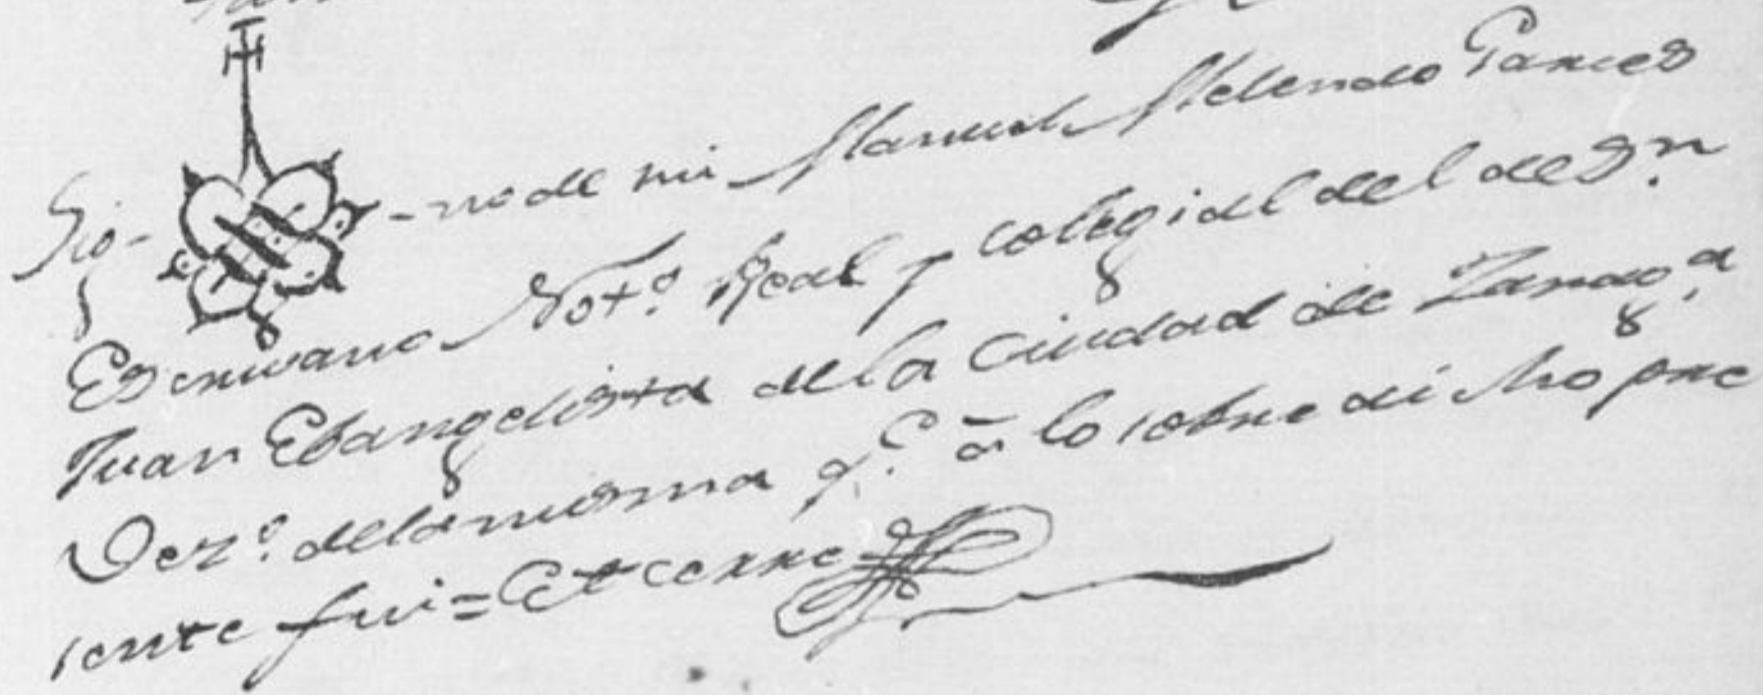 Sig- -no de mi Manuel Melendo Garces
Escrivano Not.º Real y colegial del de Sn.
Juan Ebangelista de la Ciudad de Zarag.ª
Vez.º de la misma q.e â lo sobre dicho pre
sente fui = Et cerre